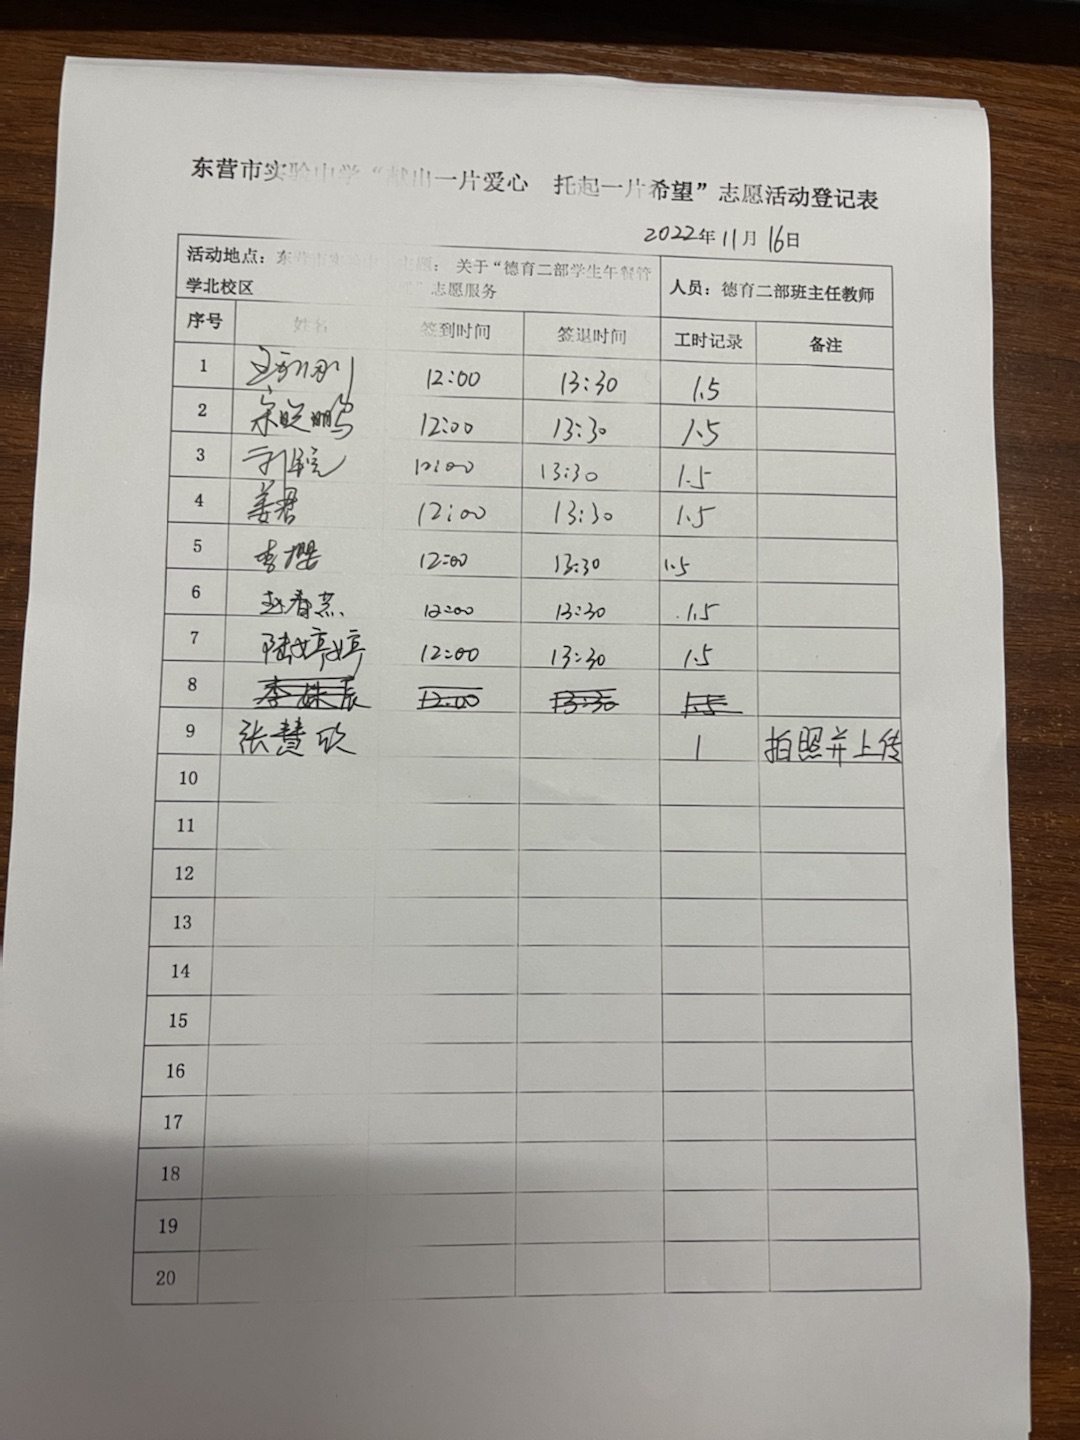 东营市实验中学“献出一片爱心 托起一片希望”志愿活动登记表
2022年11月16日
活动地点：东营市实验中学北校区
主题：关于“德育二部学生午餐管 ”志愿服务
人员：德育二部班主任教师
序号 姓名 签到时间 签退时间 工时记录 备注
1 12:00 13:30 1.5
2 宋晓鹏 12:00 13:30 1.5
3 12:00 13:30 1.5
4 姜君 12:00 13:30 1.5
5 李樱 12:00 13:30 1.5
6 赵春燕 12:00 13:30 1.5
7 陆婷婷 12:00 13:30 1.5
8 李姝辰 12:00 13:30 1.5
9 张慧欣 1 拍照并上传
10
11
12
13
14
15
16
17
18
19
20